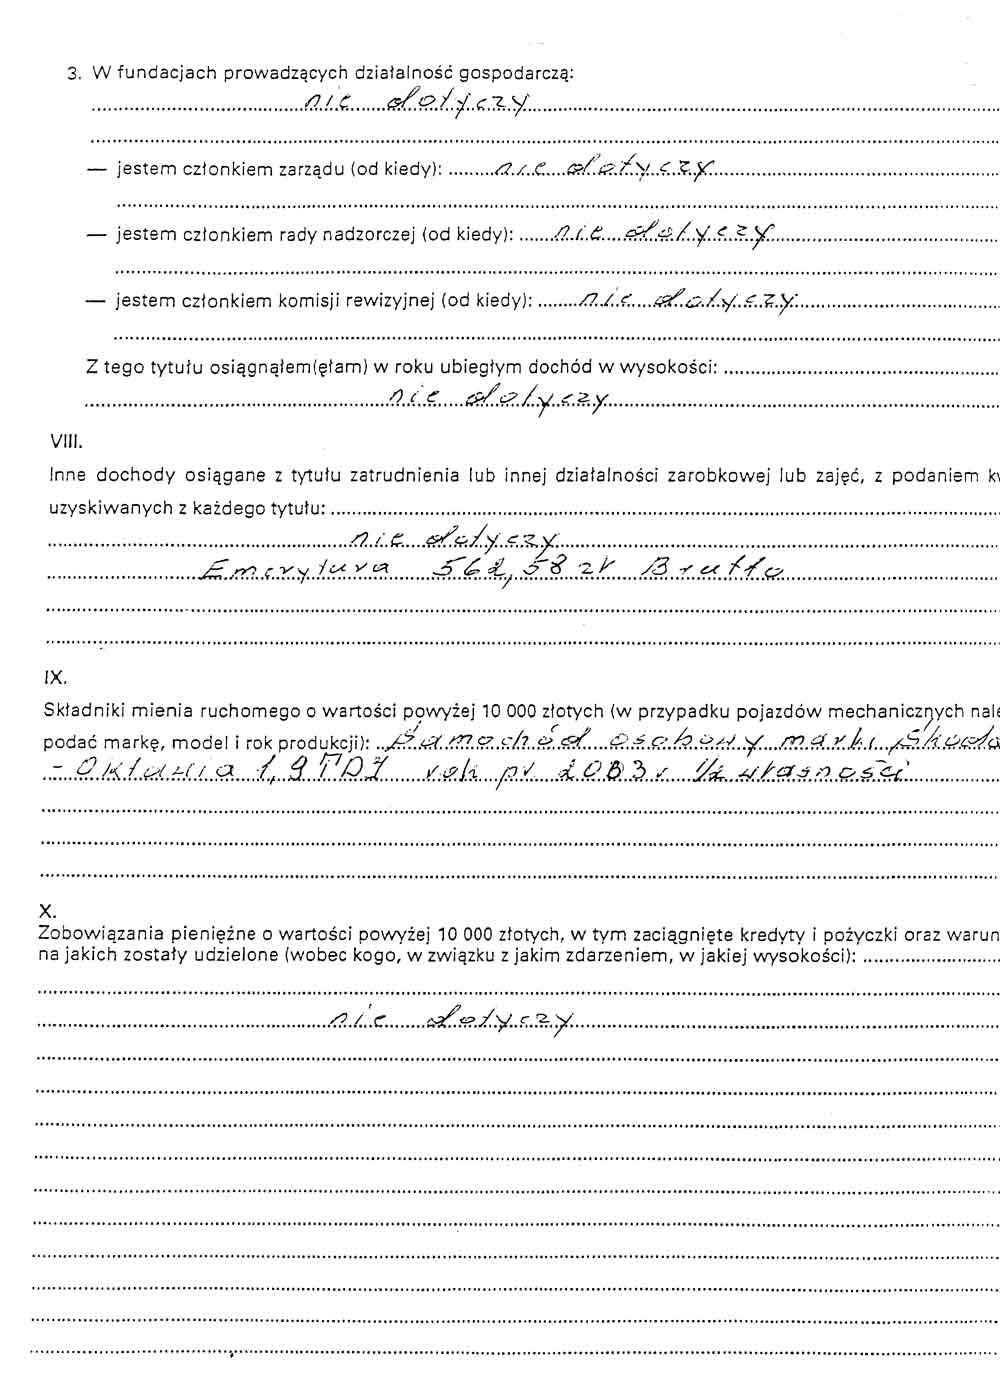 3. W fundacjach prowadzących działalność gospodarczą:
nie dotyczy
— jestem członkiem zarządu (od kiedy): nie dotyczy
— jestem członkiem rady nadzorczej (od kiedy): nie dotyczy
— jestem członkiem komisji rewizyjnej (od kiedy): nie dotyczy
Z tego tytułu osiągnąłem(ęłam) w roku ubiegłym dochód w wysokości:
nie dotyczy
VIII.
Inne dochody osiągane z tytułu zatrudnienia lub innej działalności zarobkowej lub zajęć, z podaniem kw
uzyskiwanych z każdego tytułu:
nie dotyczy
Emerytura 562,58 zł Brutto
IX.
Składniki mienia ruchomego o wartości powyżej 10 000 złotych (w przypadku pojazdów mechanicznych nale
podać markę, model i rok produkcji): Samochód osobowy marki Skoda
- Oktawia 1,9 TDI rok pr. 2003 r 1/2 własności
X.
Zobowiązania pieniężne o wartości powyżej 10 000 złotych, w tym zaciągnięte kredyty i pożyczki oraz warun
na jakich zostały udzielone (wobec kogo, w związku z jakim zdarzeniem, w jakiej wysokości):
nie dotyczy